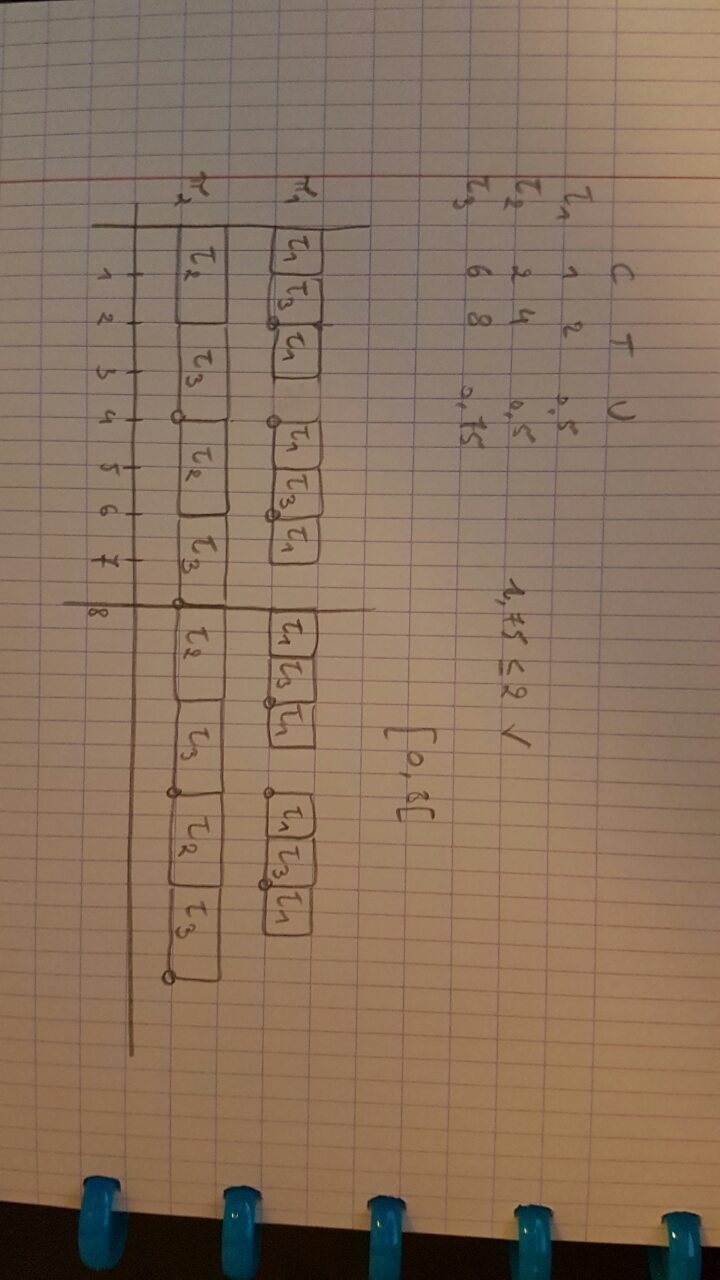 C T U
τ₁ 1 2 0,5
τ₂ 2 4 0,5 1,75 ≤ 2 ✓
τ₃ 6 8 0,75
[0, 8[
π₁ τ₁ τ₃ τ₁ τ₁ τ₃ τ₁ τ₁ τ₃ τ₁ τ₁ τ₃ τ₁
π₂ τ₂ τ₃ τ₂ τ₃ τ₂ τ₃ τ₂ τ₃
1 2 3 4 5 6 7 8